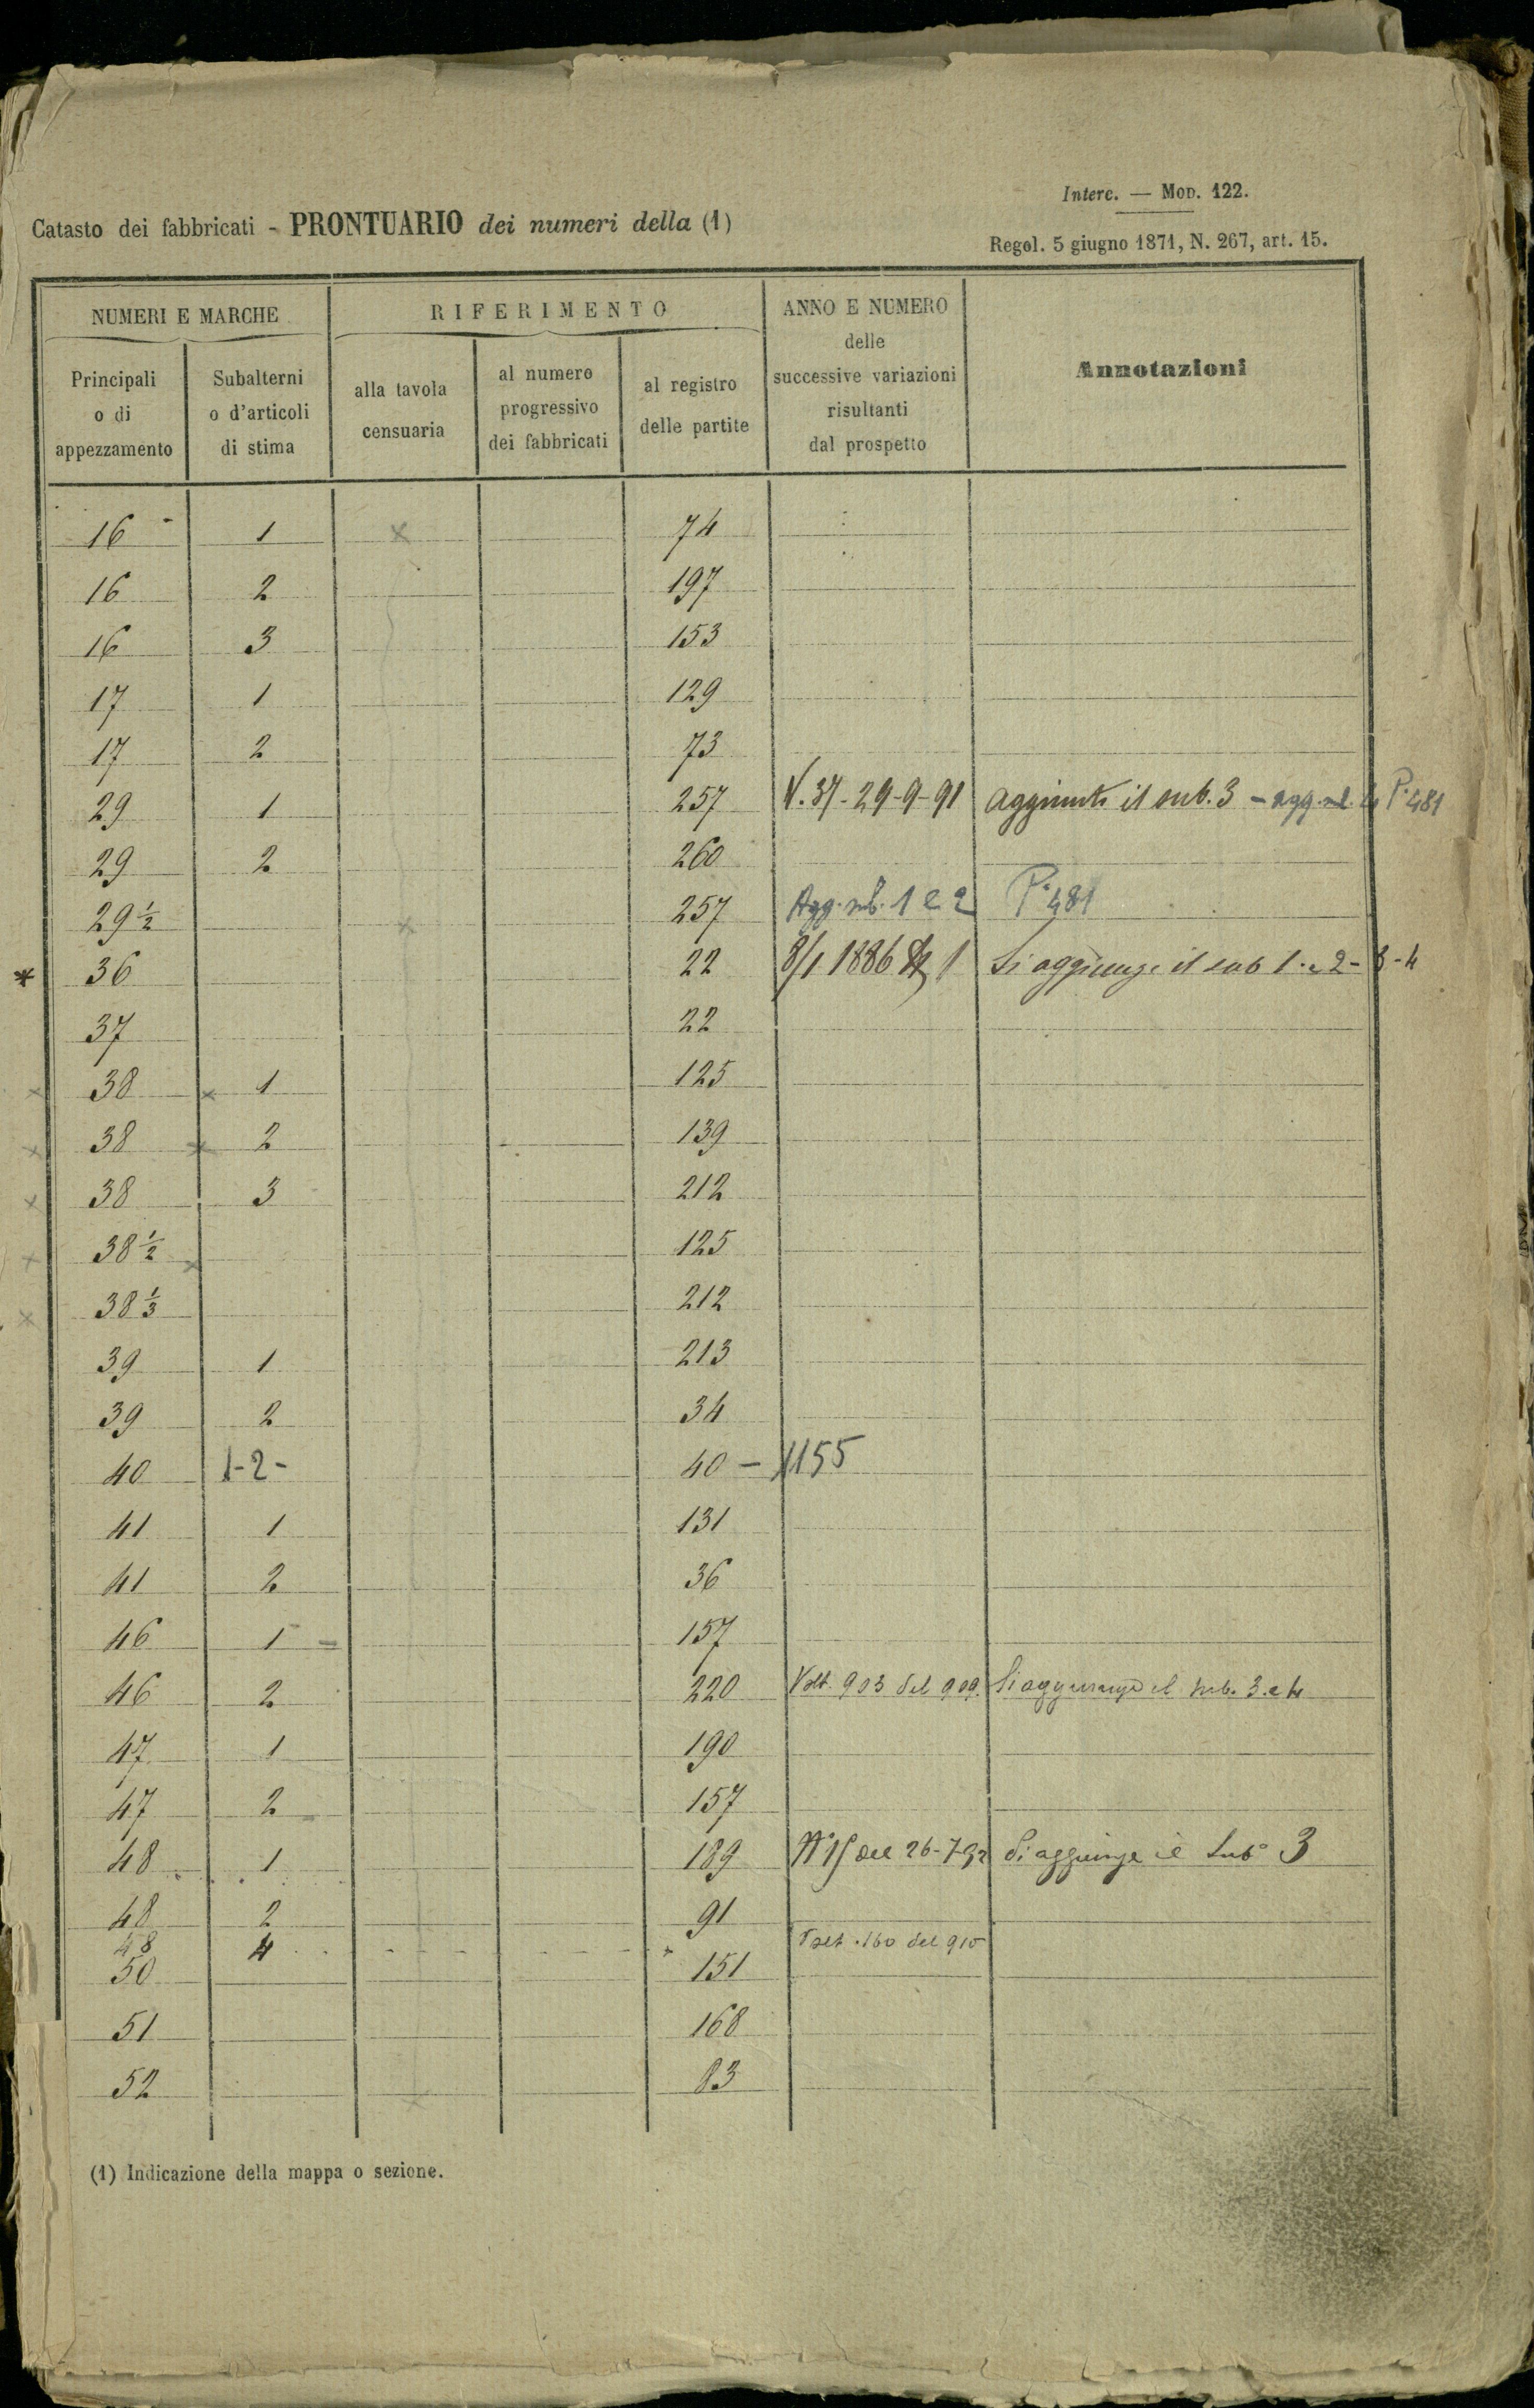 Interc. — Mod. 122.
Catasto dei fabbricati - PRONTUARIO dei numeri della (1)
Regol. 5 giugno 1871, N. 267, art. 15.
NUMERI E MARCHE
RIFERIMENTO
ANNO E NUMERO
delle
successive variazioni
risultanti
dal prospetto
Annotazioni
Principali
o di
appezzamento
Subalterni
o d'articoli
di stima
alla tavola
censuaria
al numero
progressivo
dei fabbricati
al registro
delle partite
16 1 74
16 2 197
16 3 153
17 1 129
17 2 73
29 1 257 V. 37-29-9-91 Aggiunto il sub. 3 - agg. sub. 4 P. 481
29 2 260
29 1/2 257 Agg. sub. 1 e 2 P. 481
* 36 22 8/1 1886 1 Si aggiunge il sub 1 e 2 - 3 - 4
37 22
38 1 125
38 2 139
38 3 212
38 1/2 125
38 1/3 212
39 1 213
39 2 34
40 1-2- 40 - 1155
41 1 131
41 2 36
46 1 157
46 2 220 Volt. 903 del 909. Si aggiunge il sub. 3 e 4
47 1 190
47 2 157
48 1 189 del 26-7-92 Si aggiunge il Sub° 3
48 2 91
48 4 160 del 910
50 151
51 168
52 83
(1) Indicazione della mappa o sezione.